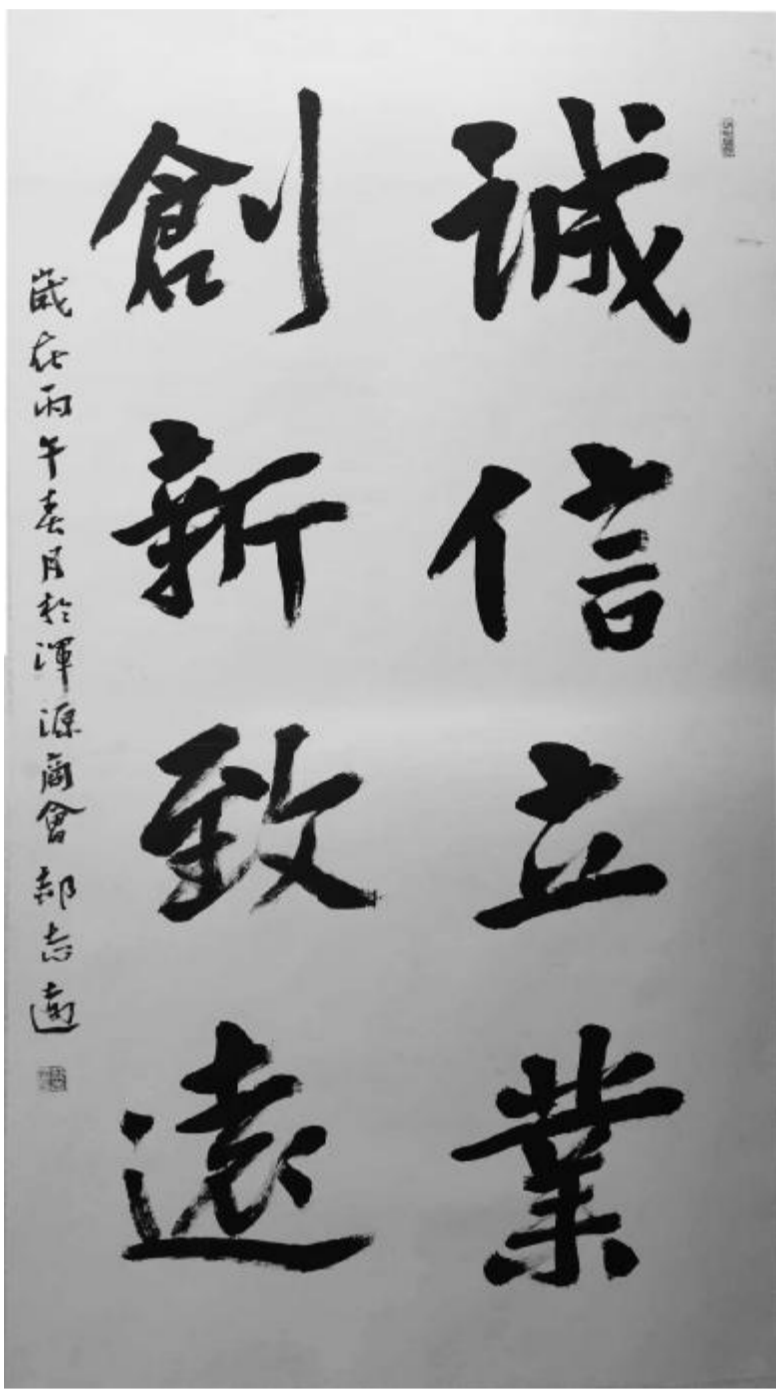 誠信立業
創新致遠
歲在丙午春月於渾源商會郝志遠